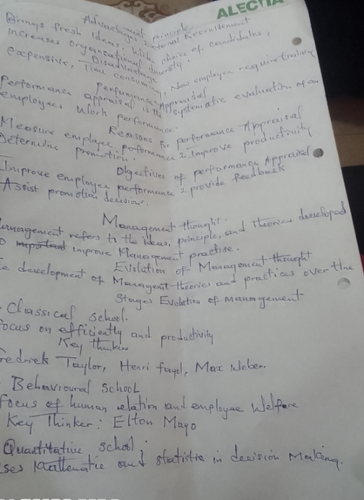 ALECTIA
Advantages
External Recruitment
Brings fresh ideas, choice of candidates,
increases organisational diversity.
Disadvantages
Expensive, Time consuming, New employee require training
performance Appraisal
Performance appraisal is the systematic evaluation of an
employees work performance.
Reasons for performance Appraisal
Measure employee performance 2 Improve productivity
Determine promotion.
Objectives of performance Appraisal
Improve employee performance 2 provide feedback
Assist promotion decision.
Management thought.
Management refers to the ideas, principle, and theories developed
improve Management practise.
Evolution of Management thought
development of Management theories and practices over the
Stages Evolution of management
Classical school.
Focus on efficiently and productivity
Key thinker
Fredrick Taylor, Henri fayol, Max Weber.
Behavioural school
Focus of human relation and employee Welfare
Key Thinker: Elton Mayo
Quantitative school.
uses Mathematic and statistic in decision Making.